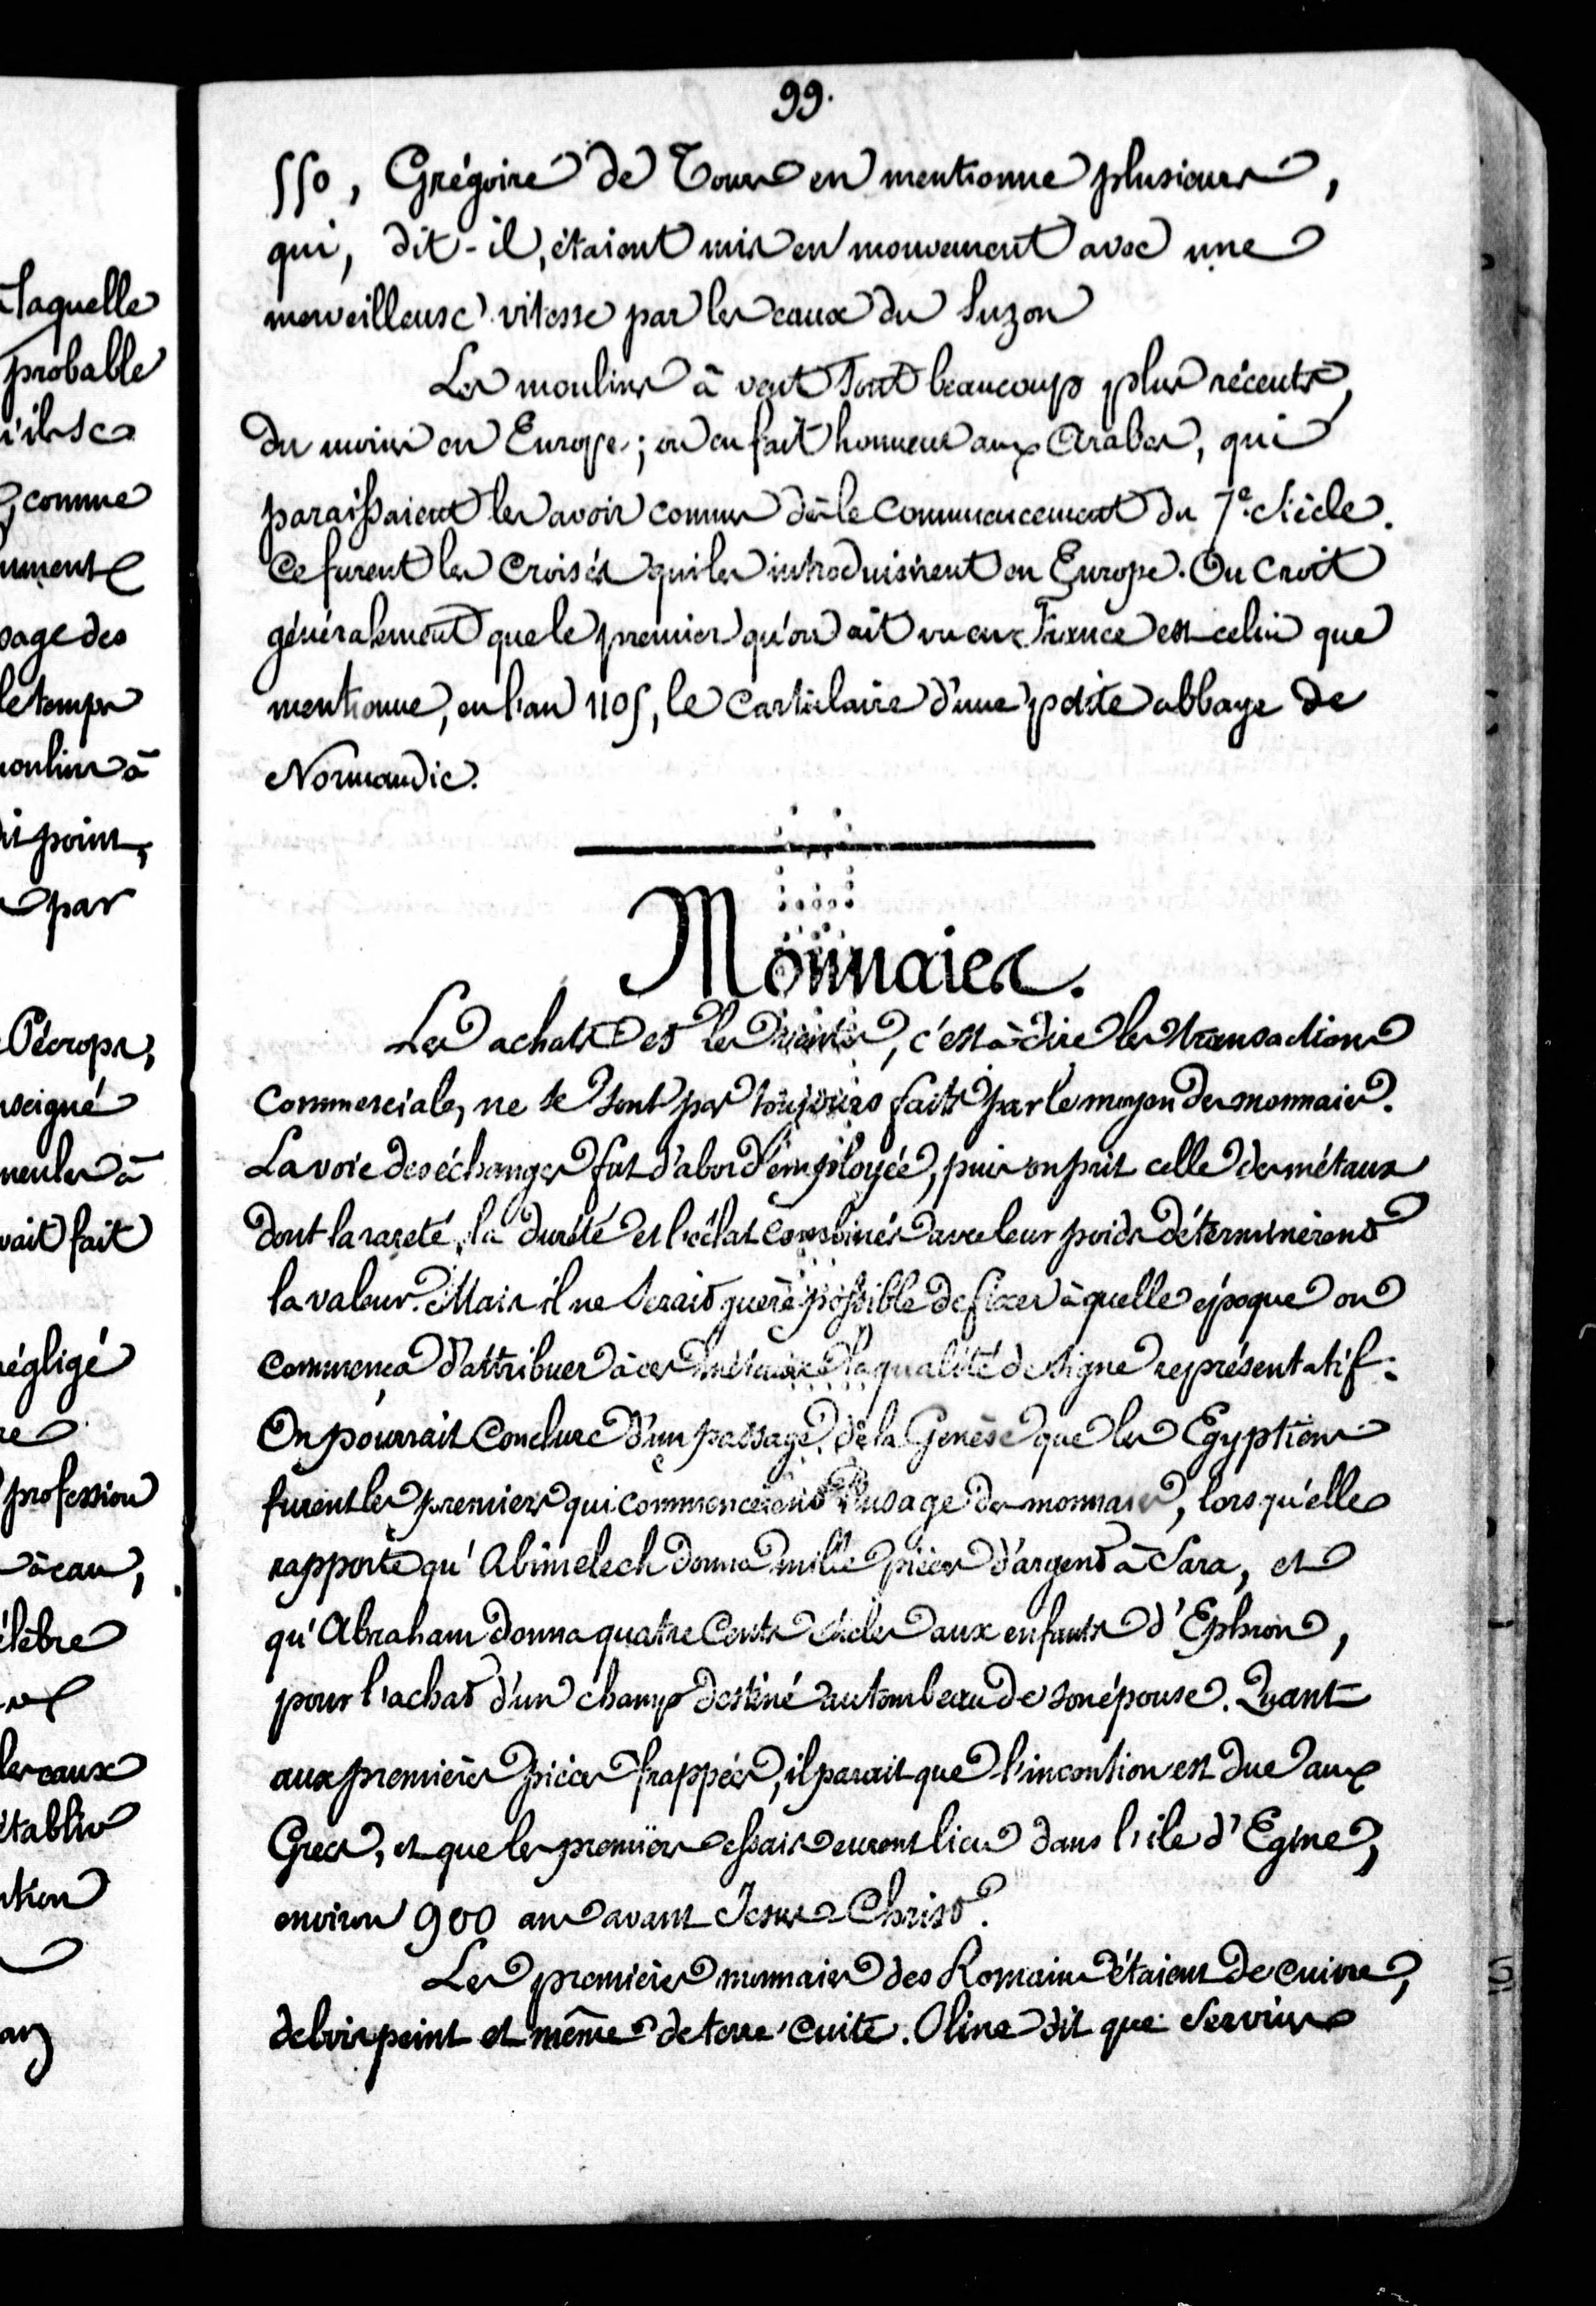 99.
550, Grégoire de Tours en mentionne plusieurs,
qui, dit-il, étaient mis en mouvement avec une
merveilleuse vitesse par les eaux du Suzon
Les moulins à vent sont beaucoup plus récents,
du moins en Europe; on en fait honneur aux Arabes, qui
paraissaient les avoir connus dès le commencement du 7e Siècle.
Ce furent les Croisés qui les introduisirent en Europe. On croit
généralement que le premier qu'on ait vu en France est celui que
mentionne, en l'an 1105, le Cartulaire d'une petite abbaye de
Normandie.
Monnaies.
Les achats et les ventes, c'est à dire les transactions
commerciales, ne se sont pas toujours faits par le moyen des monnaies.
La voie des échanges fut d'abord employée, puis on prit celle des métaux
dont la rareté, la dureté et l'éclat combinés avec leur poids déterminèrent
la valeur. Mais il ne serait guère possible de fixer à quelle époque on
commença d'attribuer à ces métaux la qualité de signe représentatif.
On pourrait conclure d'un passage de la Genèse que les Egyptiens
furent les premiers qui commencèrent l'usage des monnaies, lorsqu'elle
rapporte qu'Abimelech donna mille pièces d'argent à Sara, et
qu'Abraham donna quatre cents sicles aux enfants d'Ephron,
pour l'achat d'un champ destiné au tombeau de son épouse. Quant
aux premières pièces frappées, il parait que l'invention est due aux
Grecs, et que les premiers essais eurent lieu dans l'ile d'Egine,
environ 900 ans avant Jesus-Christ.
Les premières monnaies des Romains étaient de cuivre,
de bois peint et même de terre cuite. Pline dit que Servius
à laquelle
probable
comme
sage des
le temps
moulins à
point,
par
Cécrops,
meules à
fait
négligé
profession
à eau,
célèbre
les eaux